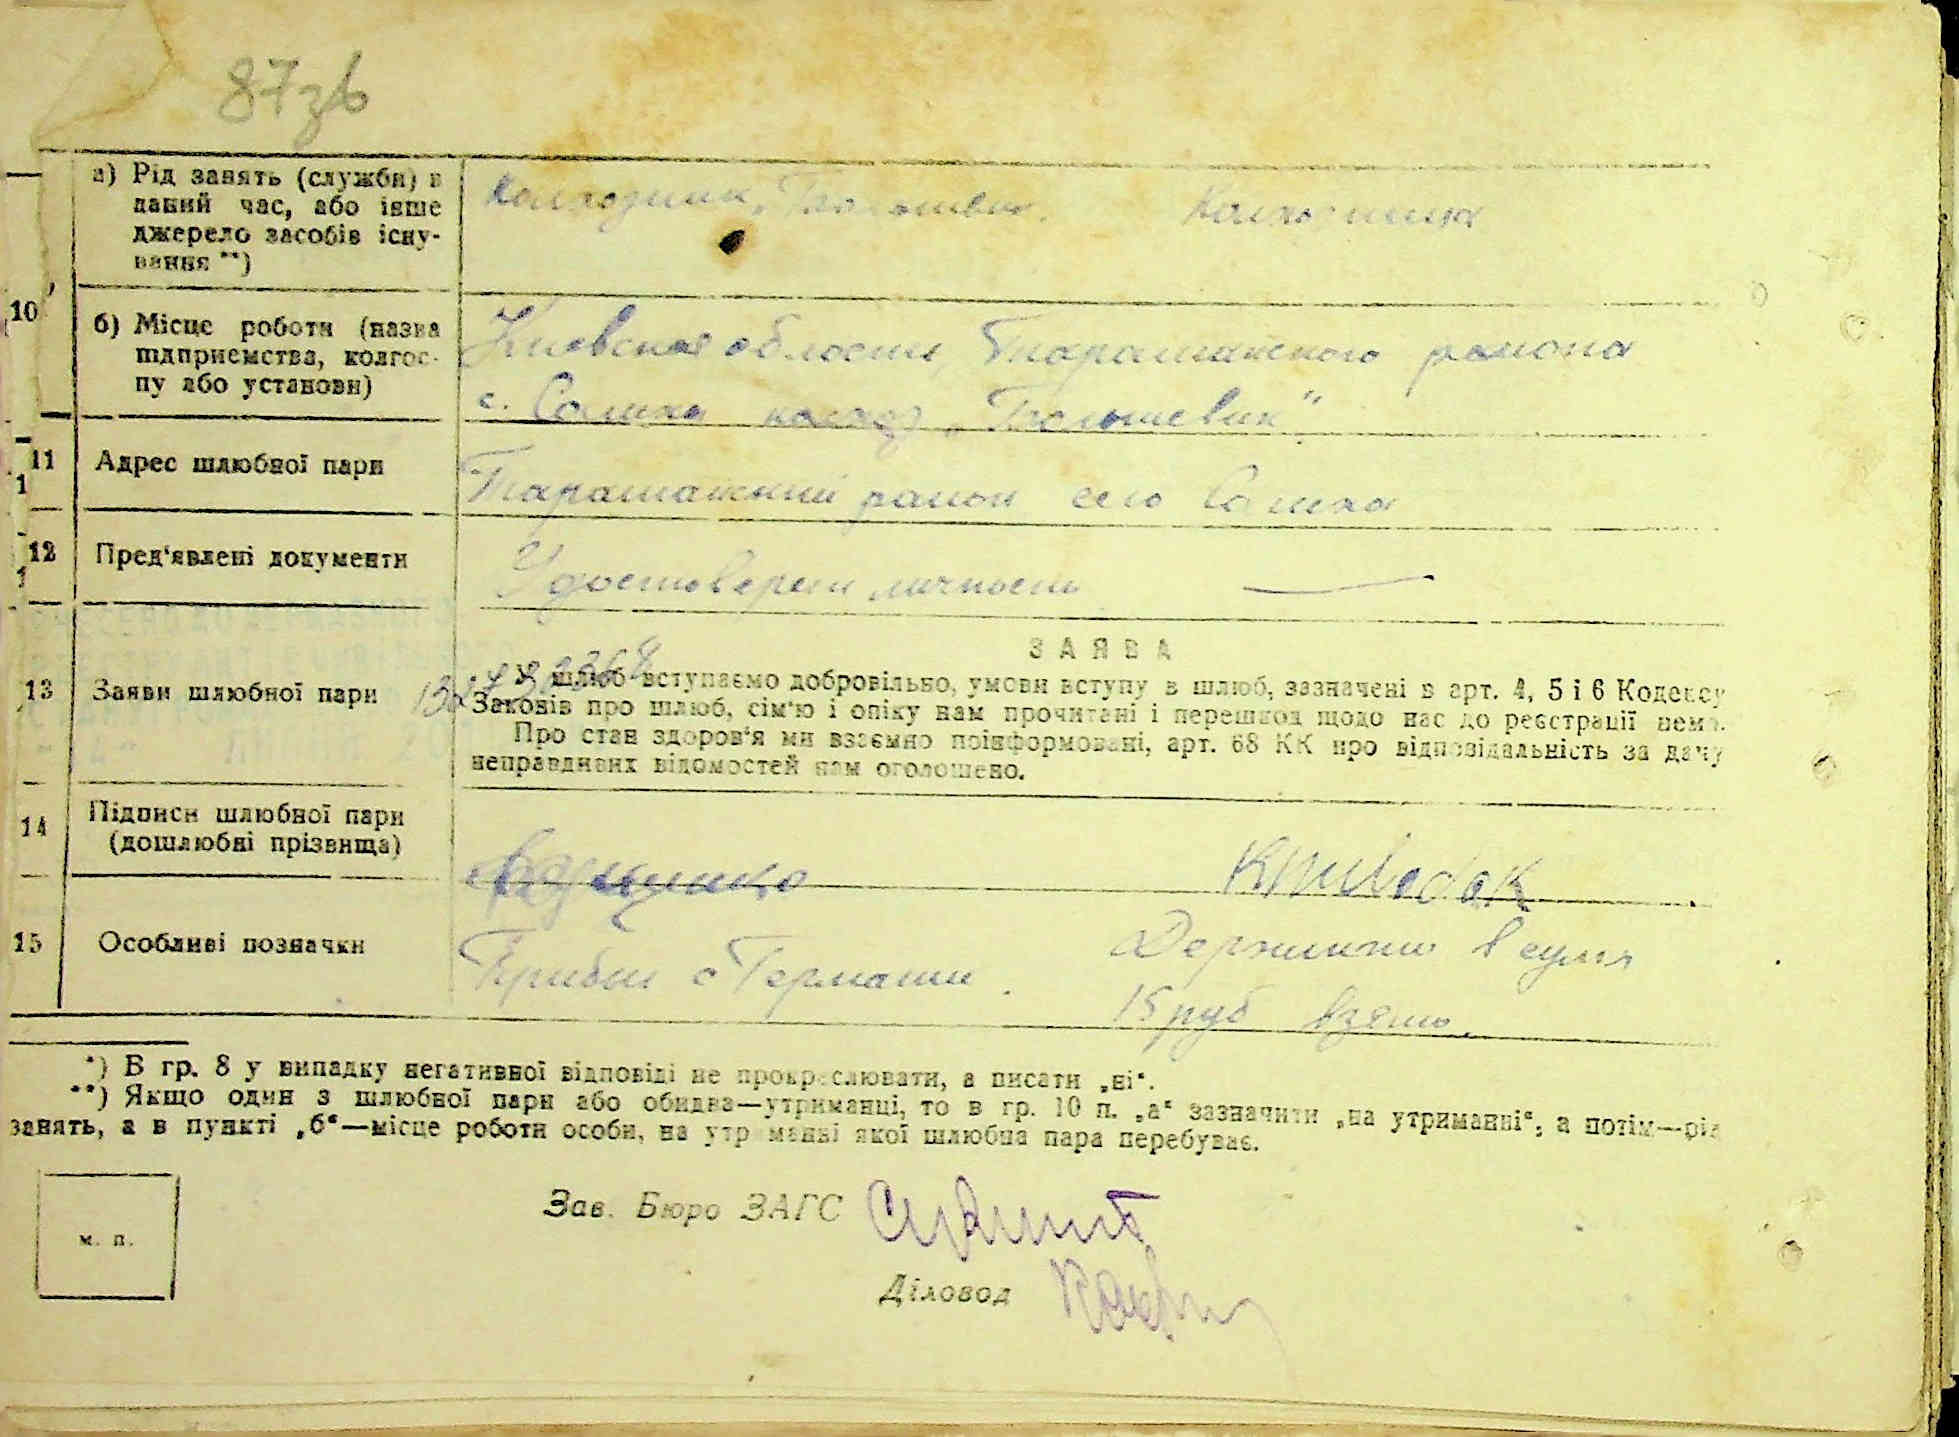 87зв
а) Рід занять (служби) в
даний час, або інше
джерело засобів існу-
вання **)
Колхозник „Большевик
Колхозница
10
б) Місце роботи (назва
підприємства, колгос-
пу або установи)
Киевская область, Таращанского района
с. Салиха колхоз „Большевик"
11
Адрес шлюбної пари
Таращанский район село Салиха
12
Пред'явлені документи
Удостоверен личность —
13
Заяви шлюбної пари
ЗАЯВА
У шлюб вступаємо добровільно, умови вступу в шлюб, зазначені в арт. 4, 5 і 6 Кодексу
Законів про шлюб, сім'ю і опіку нам прочитані і перешкод щодо нас до реєстрації нема.
Про стан здоров'я ми взаємно поінформовані, арт. 68 КК про відповідальність за дачу
неправдивих відомостей нам оголошено.
14
Підписи шлюбної пари
(дошлюбні прізвища)
15
Особливі позначки
Прибыл с Германии.
Держпошл в сумі
15 руб взято.
*) В гр. 8 у випадку негативної відповіді не прокреслювати, а писати „ні“.
**) Якщо один з шлюбної пари або обидва—утриманці, то в гр. 10 п. „а“ зазначити „на утриманні“, а потім—рід
занять, а в пункті „б“—місце роботи особи, на утриманні якої шлюбна пара перебуває.
м. п.
Зав. Бюро ЗАГС
Діловод